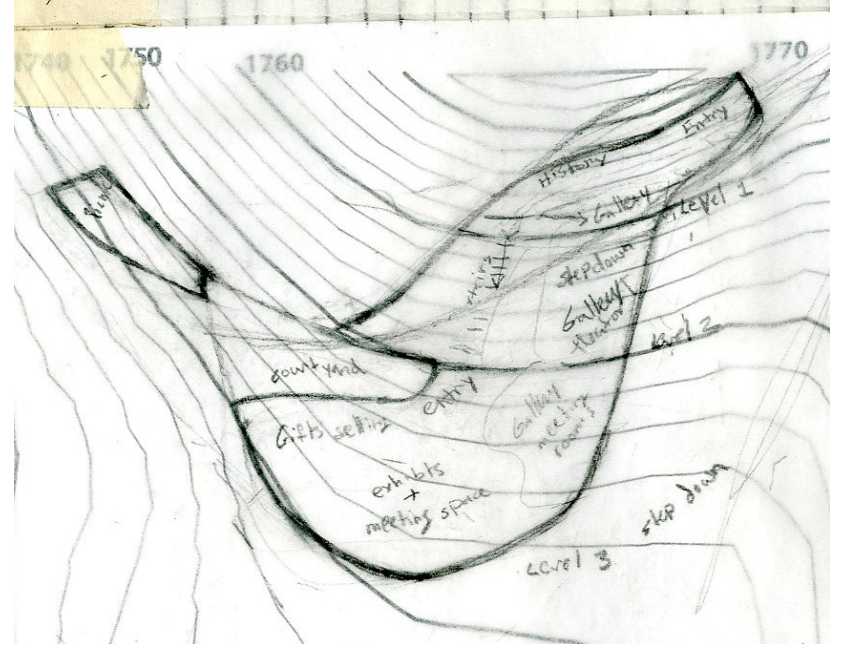 1740
1750
1760
1770
Entry
History
Gallery
Level 1
stairs
step down
Gallery
theator
Level 2
court yard
entry
Gifts selling
Gallery
meeting
rooms
exhibts
+
meeting space
step down
Level 3